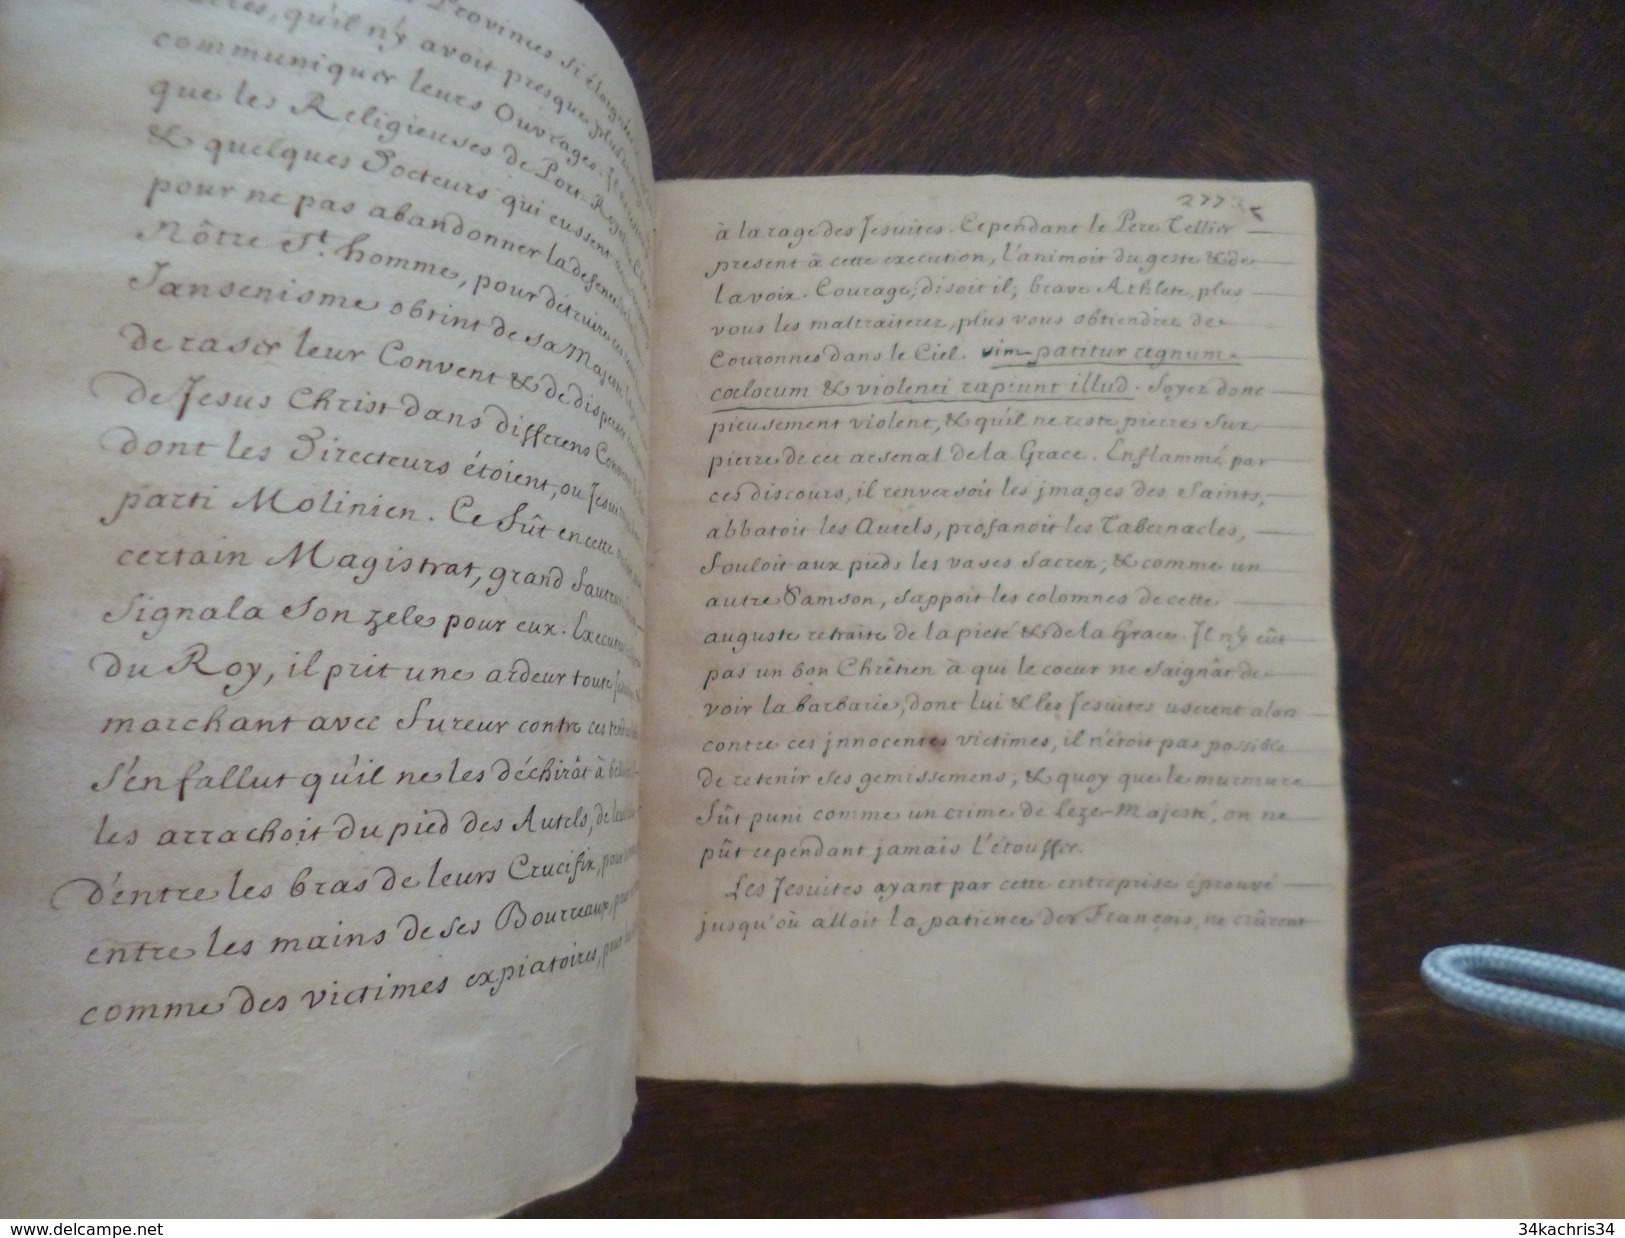 Provinces si éloignées
qu'il n'y avoit presque plus
communiquer leurs Ouvrages. Il
que les Religieuses de Port-Royal
& quelques Docteurs qui eussent
pour ne pas abandonner la defense
Nôtre St. homme, pour détruire
Jansenisme obtint de sa Majesté
de raser leur Convent & de disperser
de Jesus Christ dans differens Convens
dont les Directeurs étoient, ou Jesuites
parti Molinien. Ce fût en cette
certain Magistrat, grand fauteur
signala son zele pour eux. Executeur
du Roy, il prit une ardeur toute
marchant avec fureur contre ces
s'en fallut qu'il ne les déchirât à
les arrachoit du pied des Autels, de
d'entre les bras de leurs Crucifix, pour
entre les mains de ses Bourreaux, pour
comme des victimes expiatoires, pour
277
à la rage des Jesuites. Cependant le Pere Tellier
present à cette execution, l'animoit du geste & de
la voix. Courage, disoit il, brave Athlete, plus
vous les maltraiterez, plus vous obtiendrez de
Couronnes dans le Ciel. vim patitur regnum
cœlorum & violenti rapiunt illud. Soyez donc
pieusement violent, & qu'il ne reste pierre sur
pierre de cet arsenal de la Grace. Enflammé par
ces discours, il renversoit les jmages des Saints,
abbatoit les Autels, profanoit les Tabernacles,
fouloit aux pieds les vases sacrez; & comme un
autre Samson, sappoit les colomnes de cette
auguste retraite de la pieté & de la Grace. Il n'y eût
pas un bon Chrêtien à qui le coeur ne saignât de
voir la barbarie, dont lui & les Jesuites userent alors
contre ces jnnocentes victimes, il n'étoit pas possible
de retenir ses gemissemens; & quoy que le murmure
fût puni comme un crime de leze-Majesté, on ne
pût cependant jamais l'étouffer.
Les Jesuites ayant par cette entreprise éprouvé
jusqu'où alloit la patience des François, ne crûrent
www.delcampe.net
34kachris34